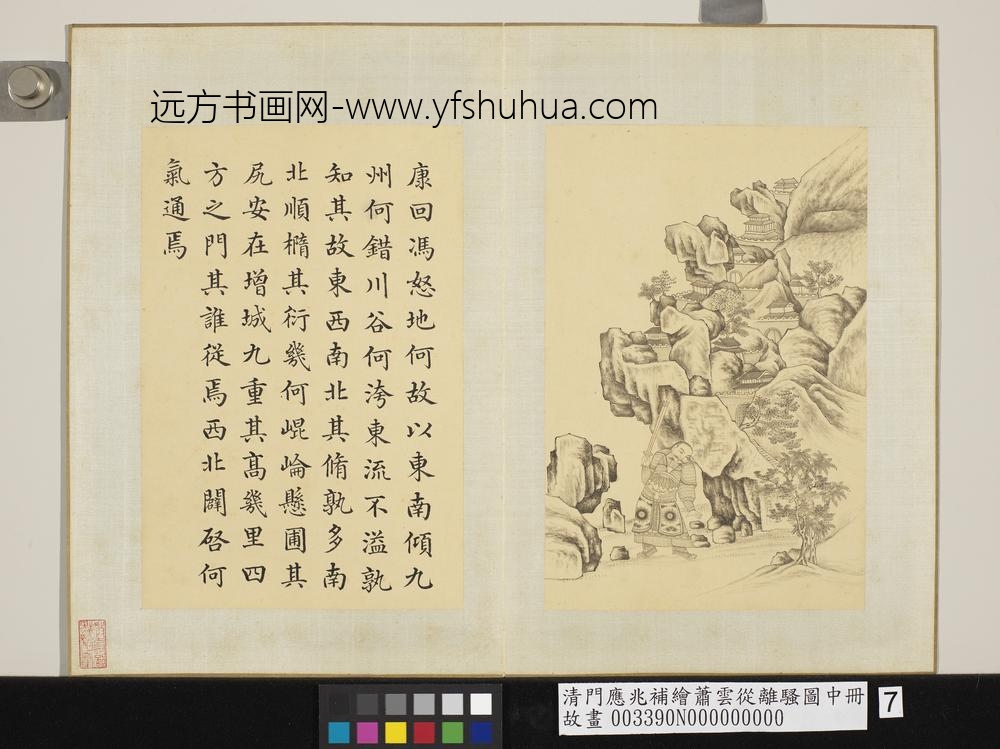 远方书画网-www.yfshuhua.com
康回馮怒地何故以東南傾九
州何錯川谷何洿東流不溢孰
知其故東西南北其脩孰多南
北順橢其衍幾何崐崘懸圃其
凥安在增城九重其髙幾里四
方之門其誰從焉西北闢啓何
氣通焉
清門應兆補繪蕭雲從離騷圖中冊
故畫 003390N000000000
7